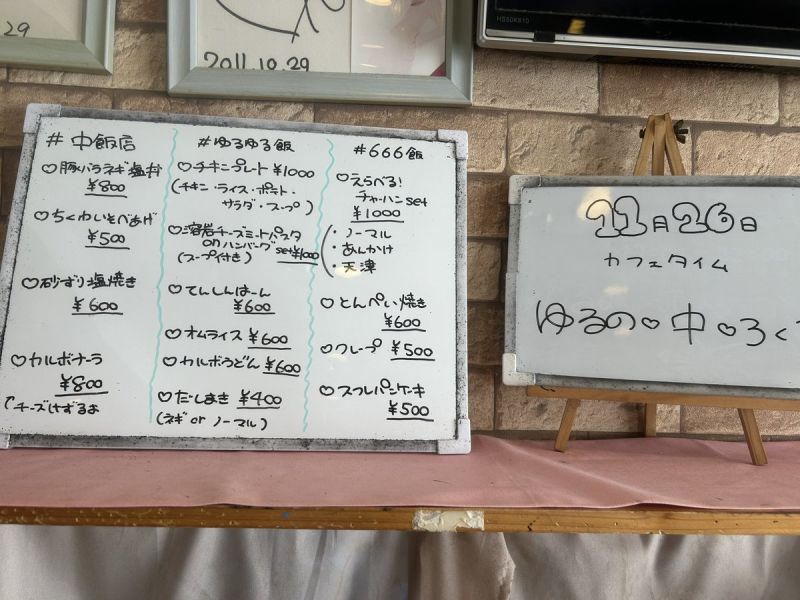 29
2011.10.29
HS50K610
#中飯店
♡豚バラネギ塩丼
¥800
♡ちくわいそべあげ
¥500
♡砂ずり塩焼き
¥600
♡カルボナーラ
¥800
チーズけずるよ
#ゆるゆる飯
♡チキンプレート ¥1000
(チキン・ライス・ポテト・
サラダ・スープ)
♡溶岩チーズミートパスタ
onハンバーグ set¥1000
(スープ付き)
♡てんしんはーん
¥600
♡オムライス ¥600
♡カルボうどん ¥600
♡だしまき ¥400
(ネギ or ノーマル)
#666飯
♡えらべる!
チャーハンset
¥1000
・ノーマル
・あんかけ
・天津
♡とんぺい焼き
¥600
♡クレープ ¥500
♡スフレパンケーキ
¥500
11月26日
カフェタイム
ゆるの♡中♡ろく